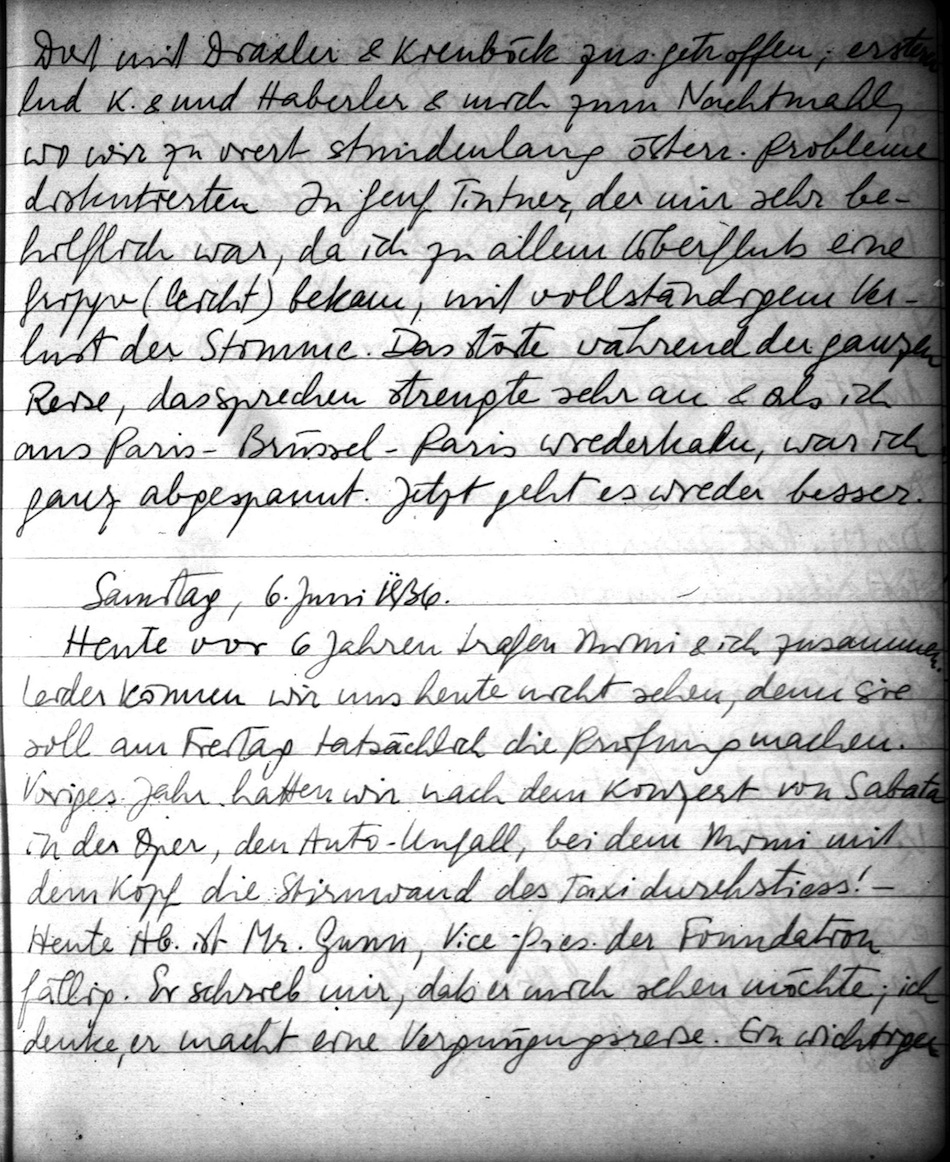 Dort mit Draxler & Kienböck zus.getroffen; ersterer
lud K. & und Haberler & mich zum Nachtmahl,
wo wir zu viert stundenlang österr. Probleme
diskutierten. In Genf Tintner, der mir sehr be-
hilflich war, da ich zu allem Überfluss eine
Grippe (leicht) bekam, mit vollständigem Ver-
lust der Stimme. Das störte während der ganzen
Reise, das sprechen strengte sehr an & als ich
aus Paris - Brüssel - Paris wiederkam, war ich
ganz abgespannt. Jetzt geht es wieder besser.
Samstag, 6. Juni 1936.
Heute vor 6 Jahren trafen Mimi & ich zusammen.
Leider können wir uns heute nicht sehen, denn sie
soll am Freitag tatsächlich die Prüfung machen.
Voriges Jahr hatten wir nach dem Konzert von Sabata
in der Oper, den Auto-Unfall, bei dem Mimi mit
dem Kopf die Stirnwand des Taxi durchstiess! -
Heute Ab. ist Mr. Gunn, Vice-Pres. der Foundation
fällig. Er schrieb mir, dass er mich sehen möchte; ich
denke, er macht eine Vergnügungsreise. Ein wichtiger